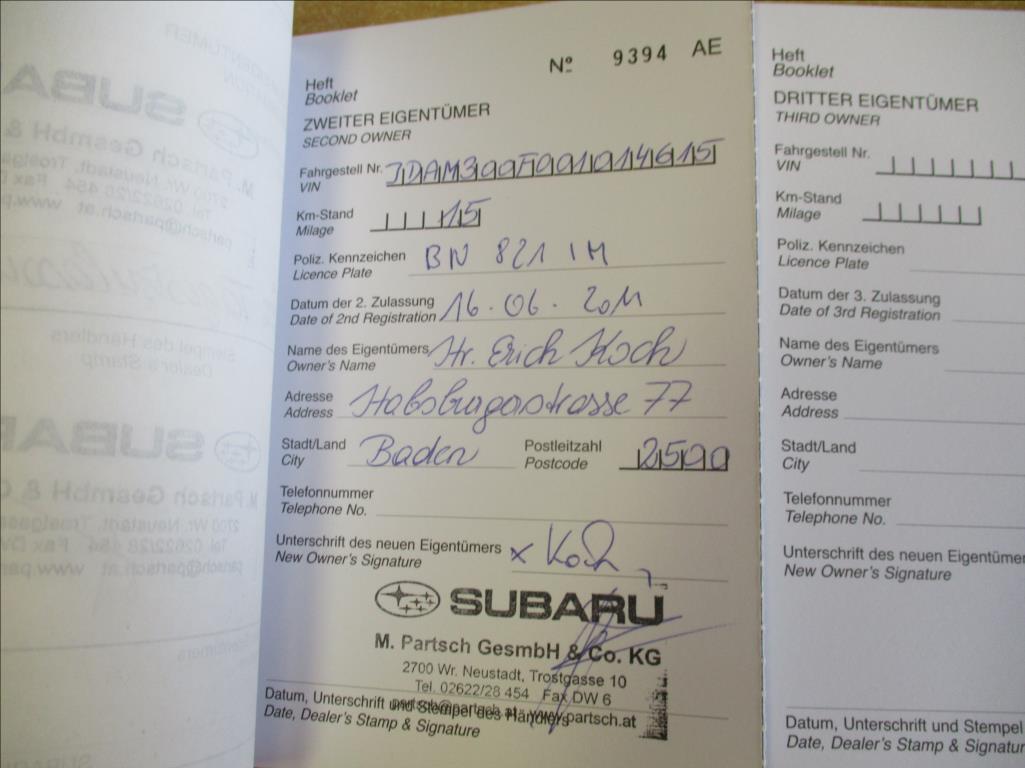 Nº 9394 AE
Heft
Booklet
ZWEITER EIGENTÜMER
SECOND OWNER
Fahrgestell Nr. JDAM300F001014615
VIN
Km-Stand 15
Milage
Poliz. Kennzeichen BN 821 IM
Licence Plate
Datum der 2. Zulassung 16.06.2011
Date of 2nd Registration
Name des Eigentümers Hr. Erich Koch
Owner's Name
Adresse Habsburgerstrasse 77
Address
Stadt/Land Baden Postleitzahl 2500
City Postcode
Telefonnummer
Telephone No.
Unterschrift des neuen Eigentümers x Koch
New Owner's Signature
SUBARU
M. Partsch GesmbH & Co. KG
2700 Wr. Neustadt, Trostgasse 10
Tel. 02622/28 454 Fax DW 6
partsch@partsch.at www.partsch.at
Datum, Unterschrift und Stempel des Händlers
Date, Dealer's Stamp & Signature
Heft
Booklet
DRITTER EIGENTÜMER
THIRD OWNER
Fahrgestell Nr.
VIN
Km-Stand
Milage
Poliz. Kennzeichen
Licence Plate
Datum der 3. Zulassung
Date of 3rd Registration
Name des Eigentümers
Owner's Name
Adresse
Address
Stadt/Land
City
Telefonnummer
Telephone No.
Unterschrift des neuen Eigentümer
New Owner's Signature
Datum, Unterschrift und Stempel
Date, Dealer's Stamp & Signatur